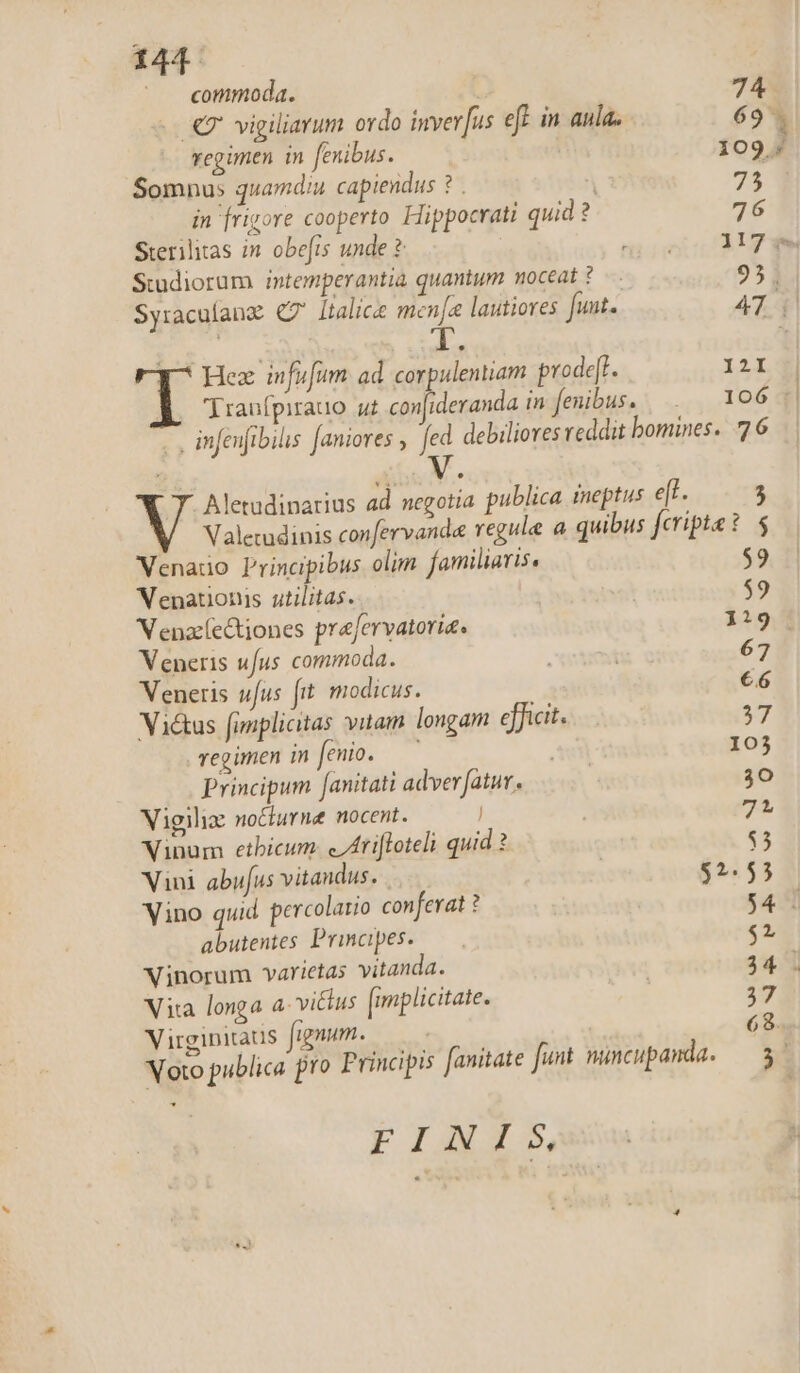 144
commoda. 74
& vigiliarum ordo inverſus eſt in aula. 69
regimen in ſenibus. 109
Somnus quamdiu capiendus? 73
in frigore cooperto Hippocrati quid? 76
Sterilitas in obeſis unde? 117
Studiorum intemperantia quantum noceat? 93
Syracuſanæ & Italicæ menſæ lautiores ſunt. 47
T.
THeæ infuſum ad corpulentiam prodeſt. 121
Tranſpiratio ut conſideranda in ſenibus. 106
inſenſibilis ſaniores, ſed debiliores reddit homines. 76
V.
VAletudinarius ad negotia publica ineptus eſt. 3
Valetudinis conſervandæ regulæ a quibus ſcriptæ? 5
Venatio Principibus olim familiaris. 59
Venationis utilitas. 59
Venæſectiones præſervatoriæ. 129
Veneris uſus commoda. 67
Veneris uſus ſit modicus. 66
Victus ſimplicitas vitam longam efficit. 37
regimen in ſenio. 103
Principum ſanitati adverſatur. 30
Vigiliæ nocturnæ nocent. 72
Vinum ethicum Ariſtoteli quid? 53
Vini abuſus vitandus. 52.53
Vino quid percolatio conferat? 54
abutentes Principes. 52
Vinorum varietas vitanda. 34
Vita longa a victus ſimplicitate. 37
Virginitatis ſignum. 68
Voto publica pro Principis ſanitate ſunt nuncupanda. 3
FINIS.